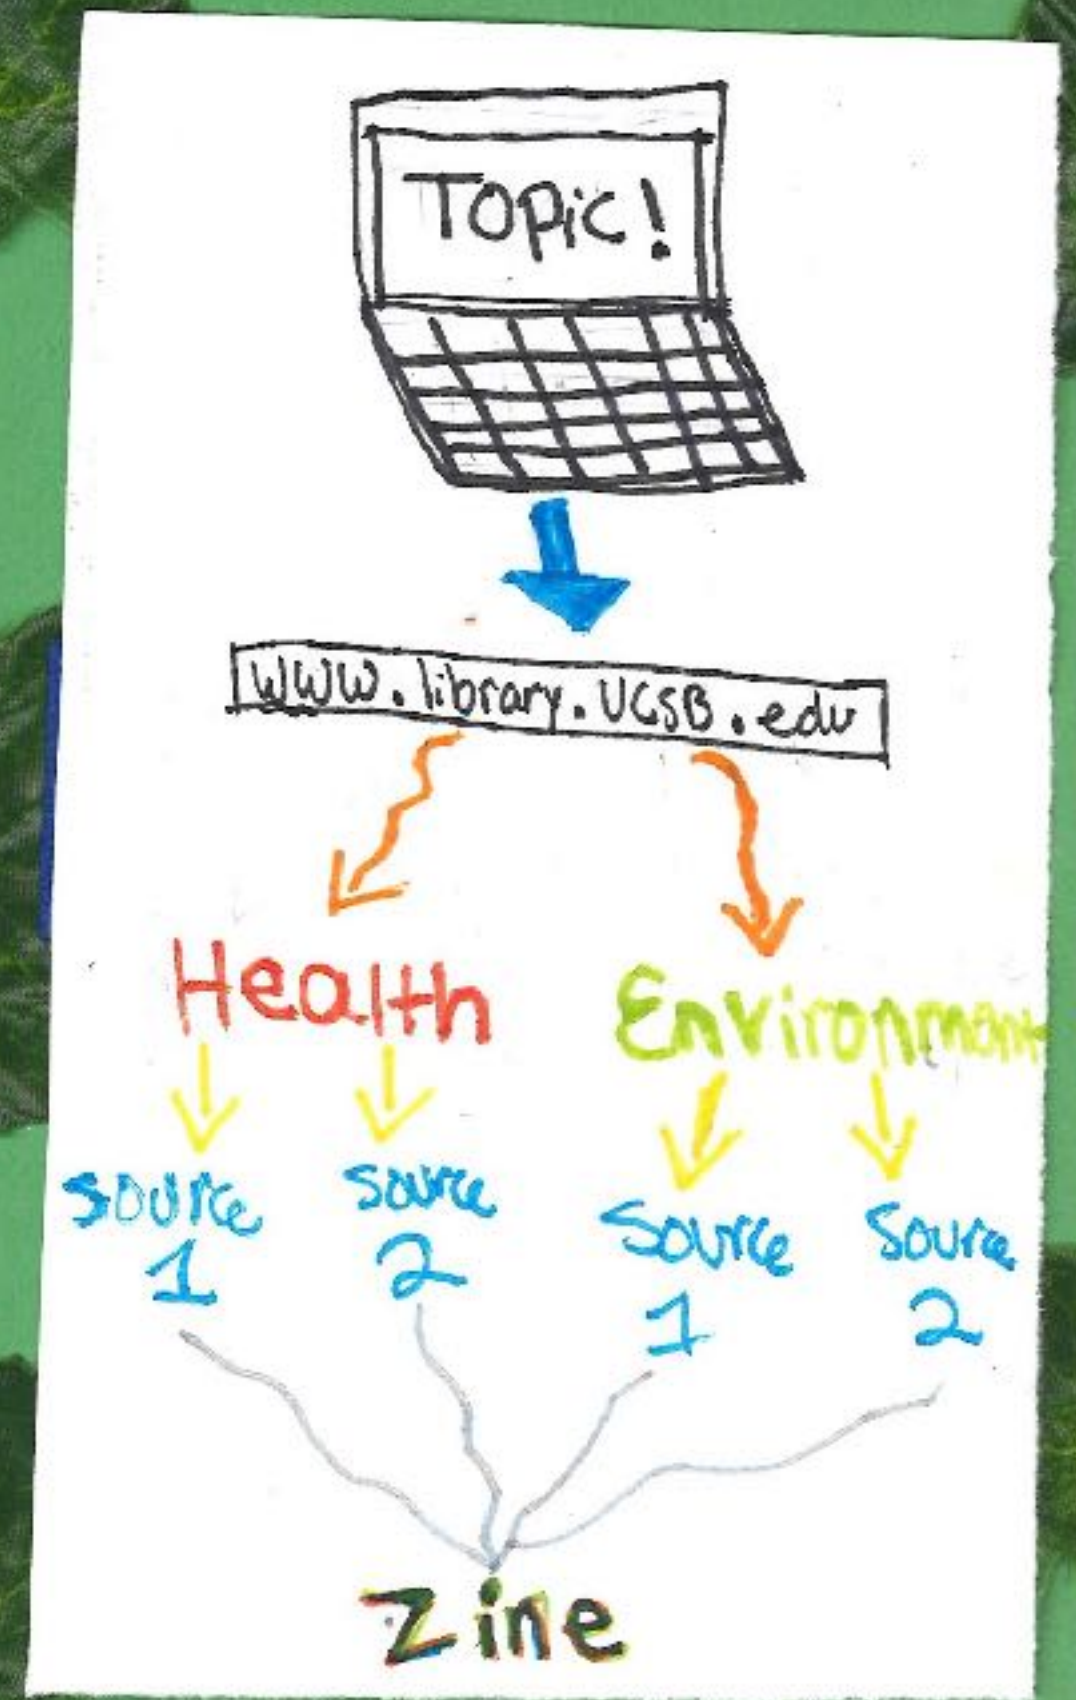 Topic!
www.library.UCSB.edu
Health Environment
source source Source Source
1 2 1 2
Zine